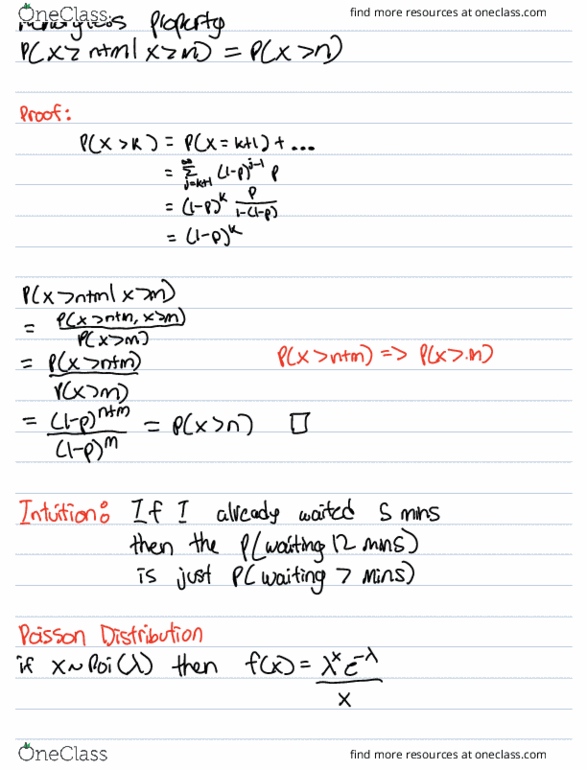 OneClass find more resources at oneclass.com
Property
P(X ≥ n+m | X ≥ m) = P(X > n)
Proof:
P(X > k) = P(X = k+1) + ...
= ∞ Σ j=k+1 (1-p)^{j-1} p
= (1-p)^k p / 1-(1-p)
= (1-p)^k
P(X > n+m | X > m)
= P(X > n+m, X > m) / P(X > m)
= P(X > n+m) / P(X > m) P(X > n+m) => P(X > m)
= (1-p)^{n+m} / (1-p)^m = P(X > n) □
Intuition: If I already waited 5 mins
then the P(waiting 12 mins)
is just P(waiting 7 mins)
Poisson Distribution
if X ~ Poi(λ) then f(x) = λ^x e^{-λ} / x
OneClass find more resources at oneclass.com